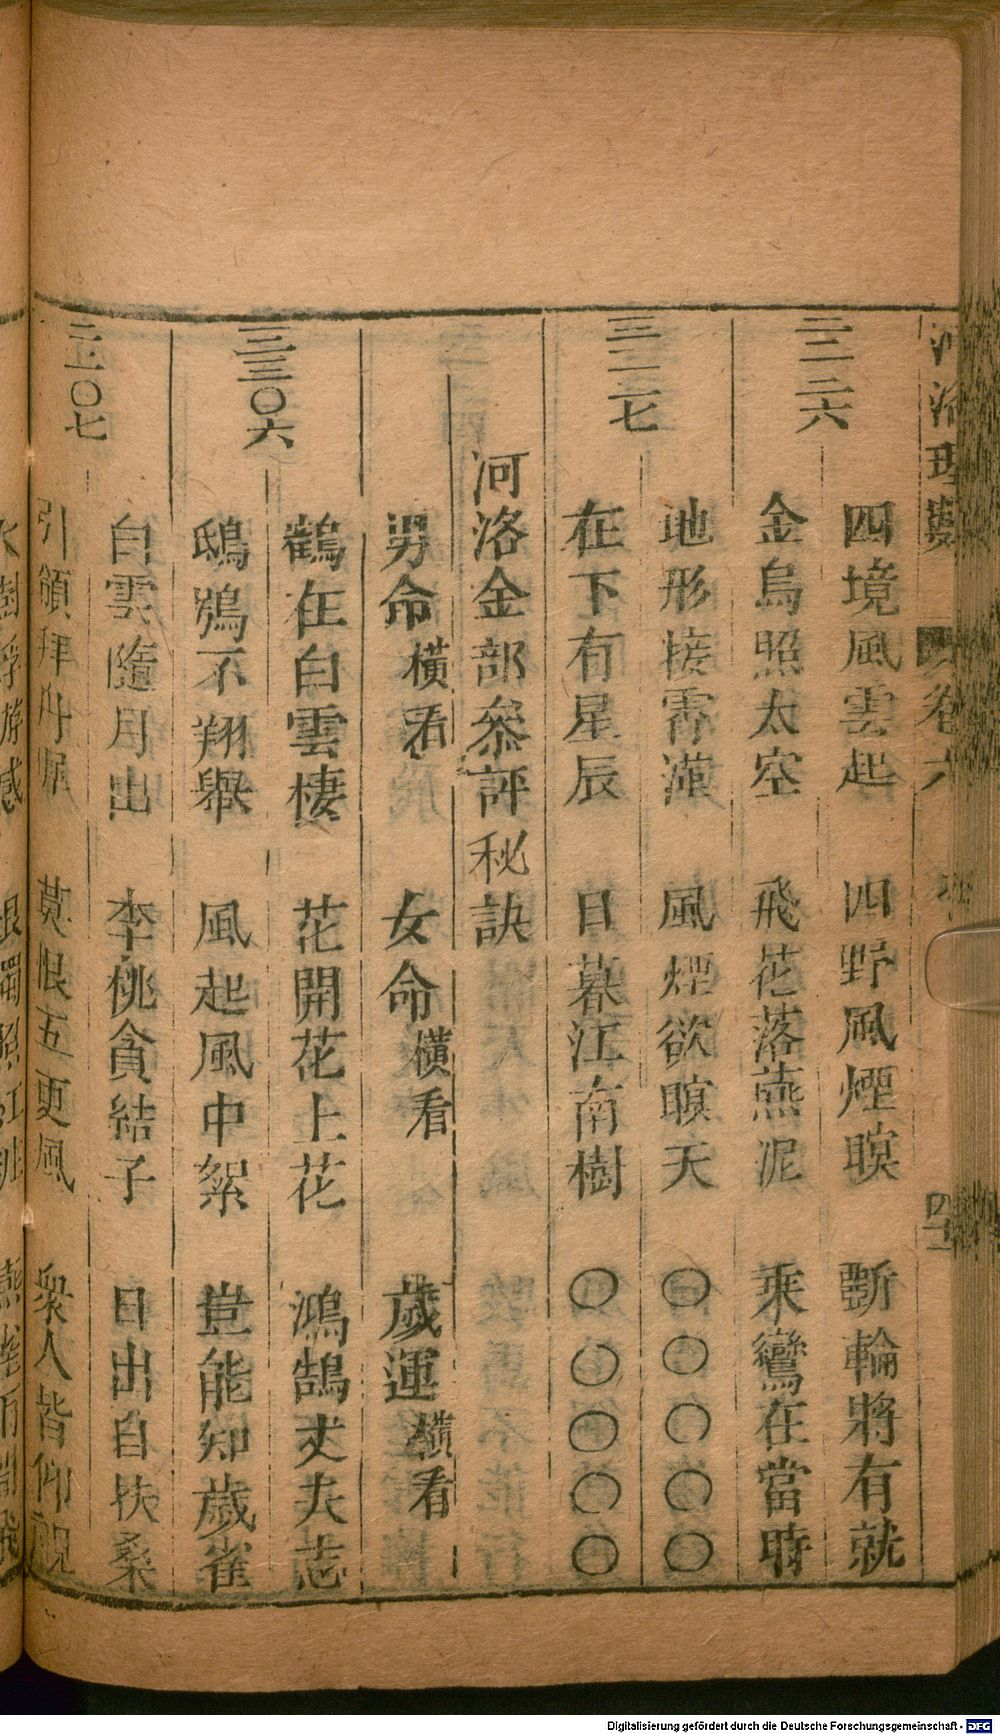 河洛理數 卷六 四十二
二二二六
四境風雲起 四野風煙暝 斲輪將有就
金烏照太空 飛花落燕泥 乘鸞在當時
三二二七
地形接霄漢 風煙欲暝天 〇〇〇〇〇
在下有星辰 日暮江南樹 〇〇〇〇〇
河洛金部叅評秘訣
男命橫看 女命橫看 歲運橫看
三三〇六
鶴在白雲棲 花開花上花 鴻鵠丈夫志
鴟鴞不翔舉 風起風中絮 豈能知歲雀
二一〇七
白雲隨月出 李桃貪結子 日出自扶桑
引領拜丹扆 莫恨五更風 衆人皆仰視
Digitalisierung gefördert durch die Deutsche Forschungsgemeinschaft - DFG